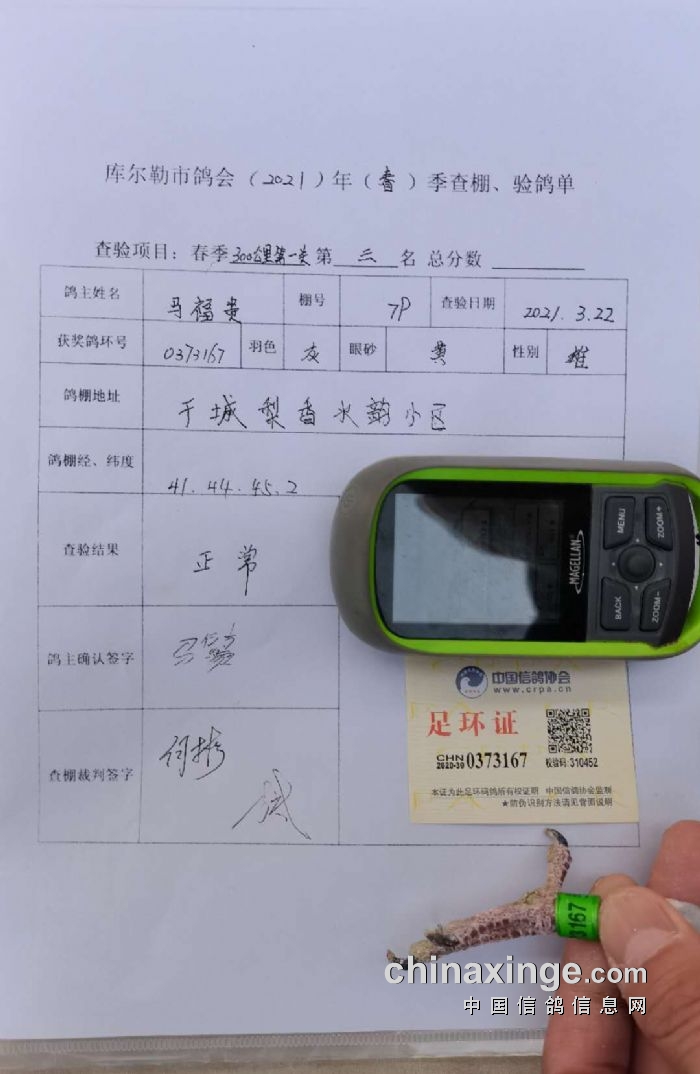 库尔勒市鸽会（2021）年（春）季查棚、验鸽单
查验项目：春季300公里第一关第 三 名 总分数
鸽主姓名 马福贵 棚号 7P 查验日期 2021.3.22
获奖鸽环号 0373167 羽色 灰 眼砂 黄 性别 雄
鸽棚地址 千城梨香水韵小区
鸽棚经、纬度 41.44.45.2
查验结果 正常
鸽主确认签字
查棚裁判签字 何彬
MAGELLAN
MENU
ZOOM+
BACK
ZOOM-
中国信鸽协会
www.crpa.cn
足环证
CHN
2020-30 0373167
校验码:310452
本证为此足环码鸽所有权证明 中国信鸽协会监制
★防伪识别方法请见背面说明
3167
chinaxinge.com
中国信鸽信息网